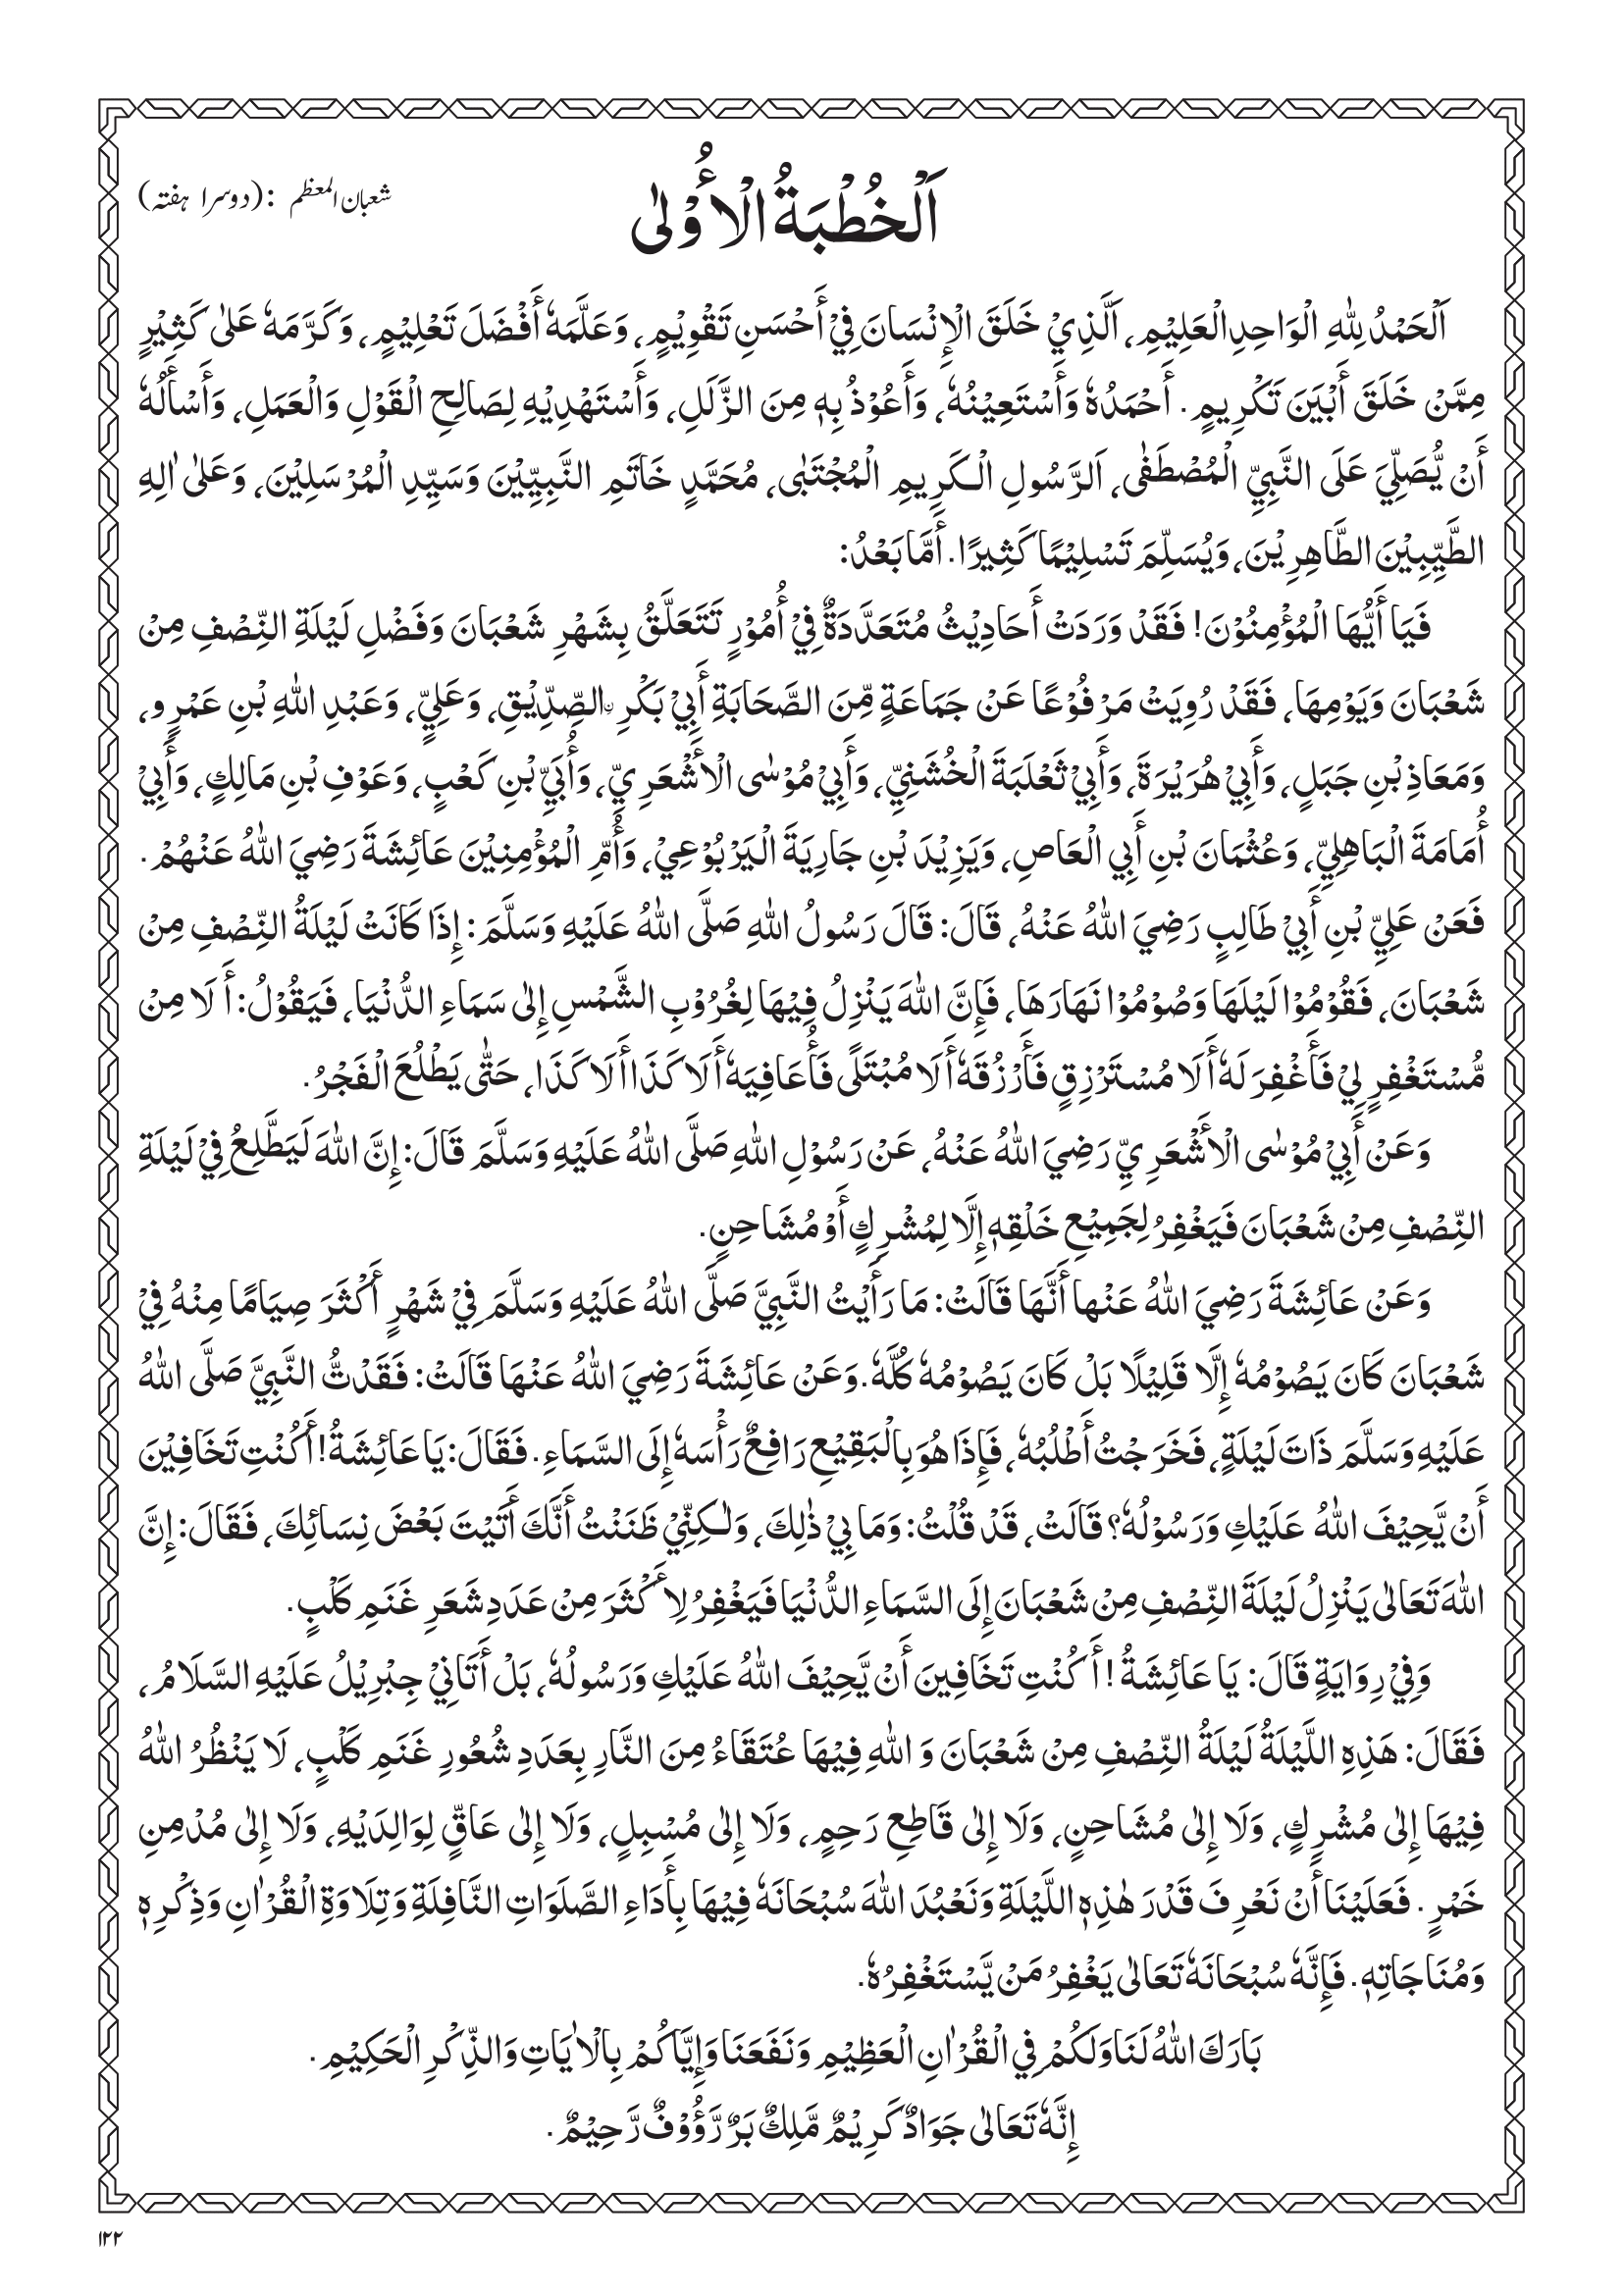 شعبان المعظم :(دوسرا ہفتہ)
اَلْخُطْبَةُ الْأُوْلٰى
اَلْحَمْدُ لِلّٰهِ الْوَاحِدِ الْعَلِيْمِ، اَلَّذِيْ خَلَقَ الْإِنْسَانَ فِيْ أَحْسَنِ تَقْوِيْمٍ، وَعَلَّمَهٗ أَفْضَلَ تَعْلِيْمٍ، وَكَرَّمَهٗ عَلىٰ كَثِيْرٍ
مِمَّنْ خَلَقَ أَبْيَنَ تَكْرِيمٍ. أَحْمَدُهٗ وَأَسْتَعِيْنُهٗ، وَأَعُوْذُ بِهٖ مِنَ الزَّلَلِ، وَأَسْتَهْدِيْهِ لِصَالِحِ الْقَوْلِ وَالْعَمَلِ، وَأَسْأَلُهٗ
أَنْ يُّصَلِّيَ عَلَى النَّبِيِّ الْمُصْطَفٰى، اَلرَّسُولِ الْكَرِيمِ الْمُجْتَبٰى، مُحَمَّدٍ خَاتَمِ النَّبِيِّيْنَ وَسَيِّدِ الْمُرْسَلِيْنَ، وَعَلىٰ اٰلِهِ
الطَّيِّبِيْنَ الطَّاهِرِيْنَ، وَيُسَلِّمَ تَسْلِيْمًا كَثِيرًا. أَمَّا بَعْدُ:
فَيَا أَيُّهَا الْمُؤْمِنُوْنَ! فَقَدْ وَرَدَتْ أَحَادِيْثُ مُتَعَدَّدَةٌ فِيْ أُمُوْرٍ تَتَعَلَّقُ بِشَهْرِ شَعْبَانَ وَفَضْلِ لَيْلَةِ النِّصْفِ مِنْ
شَعْبَانَ وَيَوْمِهَا، فَقَدْ رُوِيَتْ مَرْفُوْعًا عَنْ جَمَاعَةٍ مِّنَ الصَّحَابَةِ أَبِيْ بَكْرِ نِ الصِّدِّيْقِ، وَعَلِيٍّ، وَعَبْدِ اللهِ بْنِ عَمْرٍو،
وَمَعَاذِ بْنِ جَبَلٍ، وَأَبِيْ هُرَيْرَةَ، وَأَبِيْ ثَعْلَبَةَ الْخُشَنِيِّ، وَأَبِيْ مُوْسٰى الْأَشْعَرِيِّ، وَأُبَيِّ بْنِ كَعْبٍ، وَعَوْفِ بْنِ مَالِكٍ، وَأَبِيْ
أُمَامَةَ الْبَاهِلِيِّ، وَعُثْمَانَ بْنِ أَبِي الْعَاصِ، وَيَزِيْدَ بْنِ جَارِيَةَ الْيَرْبُوْعِيْ، وَأُمِّ الْمُؤْمِنِيْنَ عَائِشَةَ رَضِيَ اللهُ عَنْهُمْ.
فَعَنْ عَلِيِّ بْنِ أَبِيْ طَالِبٍ رَضِيَ اللهُ عَنْهُ، قَالَ: قَالَ رَسُولُ اللهِ صَلَّى اللهُ عَلَيْهِ وَسَلَّمَ: إِذَا كَانَتْ لَيْلَةُ النِّصْفِ مِنْ
شَعْبَانَ، فَقُوْمُوْا لَيْلَهَا وَصُوْمُوْا نَهَارَهَا، فَإِنَّ اللهَ يَنْزِلُ فِيْهَا لِغُرُوْبِ الشَّمْسِ إِلىٰ سَمَاءِ الدُّنْيَا، فَيَقُوْلُ: أَلَا مِنْ
مُّسْتَغْفِرٍ لِيْ فَأَغْفِرَ لَهٗ أَلَا مُسْتَرْزِقٍ فَأَرْزُقَهٗ أَلَا مُبْتَلًى فَأُعَافِيَهٗ أَلَا كَذَا أَلَا كَذَا، حَتّٰى يَطْلُعَ الْفَجْرُ.
وَعَنْ أَبِيْ مُوْسٰى الْأَشْعَرِيِّ رَضِيَ اللهُ عَنْهُ، عَنْ رَسُوْلِ اللهِ صَلَّى اللهُ عَلَيْهِ وَسَلَّمَ قَالَ: إِنَّ اللهَ لَيَطَّلِعُ فِيْ لَيْلَةِ
النِّصْفِ مِنْ شَعْبَانَ فَيَغْفِرُ لِجَمِيْعِ خَلْقِهٖ إِلَّا لِمُشْرِكٍ أَوْ مُشَاحِنٍ.
وَعَنْ عَائِشَةَ رَضِيَ اللهُ عَنْها أَنَّهَا قَالَتْ: مَا رَأَيْتُ النَّبِيَّ صَلَّى اللهُ عَلَيْهِ وَسَلَّمَ فِيْ شَهْرٍ أَكْثَرَ صِيَامًا مِنْهُ فِيْ
شَعْبَانَ كَانَ يَصُوْمُهٗ إِلَّا قَلِيْلًا بَلْ كَانَ يَصُوْمُهٗ كُلَّهٗ. وَعَنْ عَائِشَةَ رَضِيَ اللهُ عَنْهَا قَالَتْ: فَقَدْتُّ النَّبِيَّ صَلَّى اللهُ
عَلَيْهِ وَسَلَّمَ ذَاتَ لَيْلَةٍ، فَخَرَجْتُ أَطْلُبُهٗ، فَإِذَا هُوَ بِالْبَقِيْعِ رَافِعٌ رَأْسَهٗ إِلَى السَّمَاءِ. فَقَالَ: يَا عَائِشَةُ! أَكُنْتِ تَخَافِيْنَ
أَنْ يَّحِيْفَ اللهُ عَلَيْكِ وَرَسُوْلُهٗ؟ قَالَتْ، قَدْ قُلْتُ: وَمَا بِيْ ذٰلِكَ، وَلٰكِنِّيْ ظَنَنْتُ أَنَّكَ أَتَيْتَ بَعْضَ نِسَائِكَ، فَقَالَ: إِنَّ
اللهَ تَعَالىٰ يَنْزِلُ لَيْلَةَ النِّصْفِ مِنْ شَعْبَانَ إِلَى السَّمَاءِ الدُّنْيَا فَيَغْفِرُ لِأَكْثَرَ مِنْ عَدَدِ شَعَرِ غَنَمِ كَلْبٍ.
وَفِيْ رِوَايَةٍ قَالَ: يَا عَائِشَةُ! أَكُنْتِ تَخَافِينَ أَنْ يَّحِيْفَ اللهُ عَلَيْكِ وَرَسُولُهٗ، بَلْ أَتَانِيْ جِبْرِيْلُ عَلَيْهِ السَّلَامُ،
فَقَالَ: هَذِهِ اللَّيْلَةُ لَيْلَةُ النِّصْفِ مِنْ شَعْبَانَ وَ اللهِ فِيْهَا عُتَقَاءُ مِنَ النَّارِ بِعَدَدِ شُعُورِ غَنَمِ كَلْبٍ، لَا يَنْظُرُ اللهُ
فِيْهَا إِلىٰ مُشْرِكٍ، وَلَا إِلىٰ مُشَاحِنٍ، وَلَا إِلىٰ قَاطِعِ رَحِمٍ، وَلَا إِلىٰ مُسْبِلٍ، وَلَا إِلىٰ عَاقٍّ لِوَالِدَيْهِ، وَلَا إِلىٰ مُدْمِنِ
خَمْرٍ. فَعَلَيْنَا أَنْ نَعْرِفَ قَدْرَ هٰذِهِ اللَّيْلَةِ وَنَعْبُدَ اللهَ سُبْحَانَهٗ فِيْهَا بِأَدَاءِ الصَّلَوَاتِ النَّافِلَةِ وَتِلَاوَةِ الْقُرْاٰنِ وَذِكْرِهٖ
وَمُنَاجَاتِهٖ. فَإِنَّهٗ سُبْحَانَهٗ تَعَالىٰ يَغْفِرُ مَنْ يَّسْتَغْفِرُهٗ.
بَارَكَ اللهُ لَنَا وَلَكُمْ فِي الْقُرْاٰنِ الْعَظِيْمِ وَنَفَعَنَا وَإِيَّاكُمْ بِالْاٰيَاتِ وَالذِّكْرِ الْحَكِيْمِ.
إِنَّهٗ تَعَالىٰ جَوَادٌ كَرِيْمٌ مَّلِكٌ بَرٌ رَّؤُوْفٌ رَّحِيْمٌ.
۱۲۲